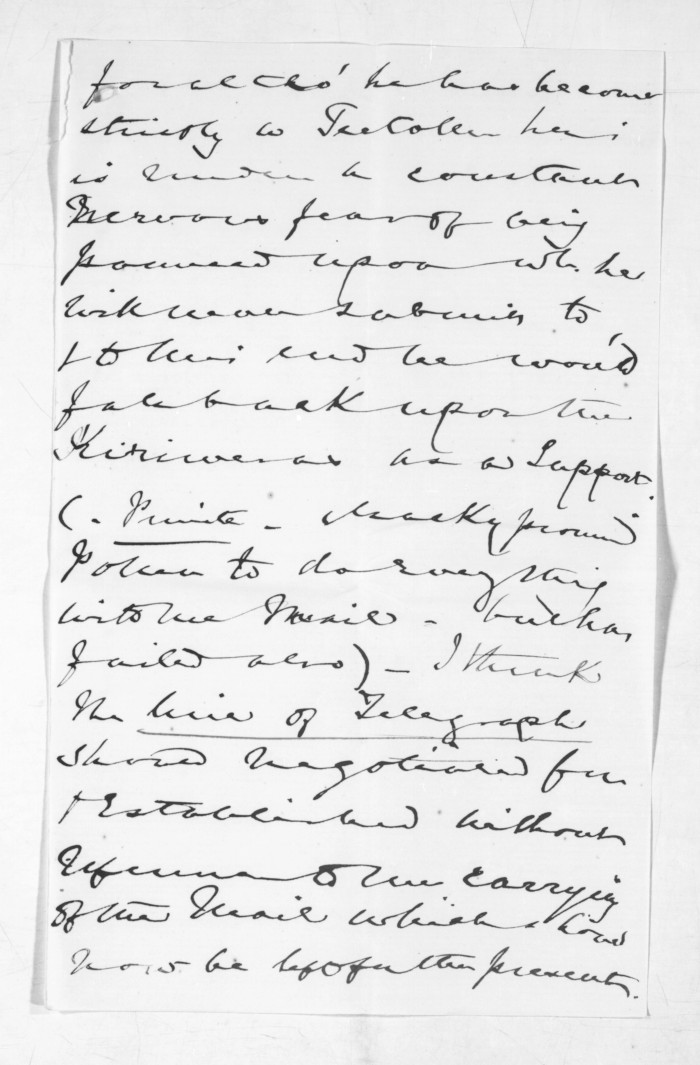 for altho' he has become
strictly a Teetotaller he
is under a constant
nervous fear of being
pounced upon wh. he
will never submit to,
& to this end he would
fall back upon the
Kiriweras as a Support.
(- Private - Macky promd
Potea to do everything
with the Mail - but has
failed also) - I think
the line of Telegraph
should negotiated for
& Established without
reference to the carrying
of the Mail which should
now be left for the present.